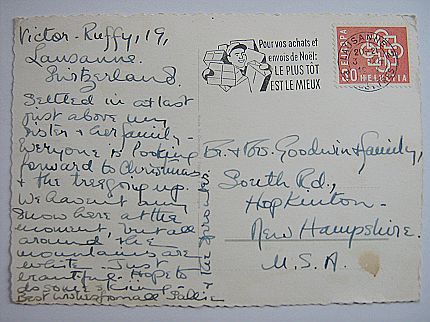 Victor-Ruffy, 19,
Lausanne.
Switzerland.
Settled in at last
just above my
sister & her family.
Everyone is looking
forward to Christmas
& the trees going up.
We haven't any
snow here at the
moment, but all
around the
mountains are
white. Just
beautiful. Hope to
do some skiing.
Best wishes from all
Pour vos achats et
envois de Noël:
LE PLUS TÔT
EST LE MIEUX
LAUSANNE
EUROPA
HELVETIA
Dr. & Mrs. Goodwin & family,
South Rd.,
Hopkinton.
New Hampshire.
U.S.A.